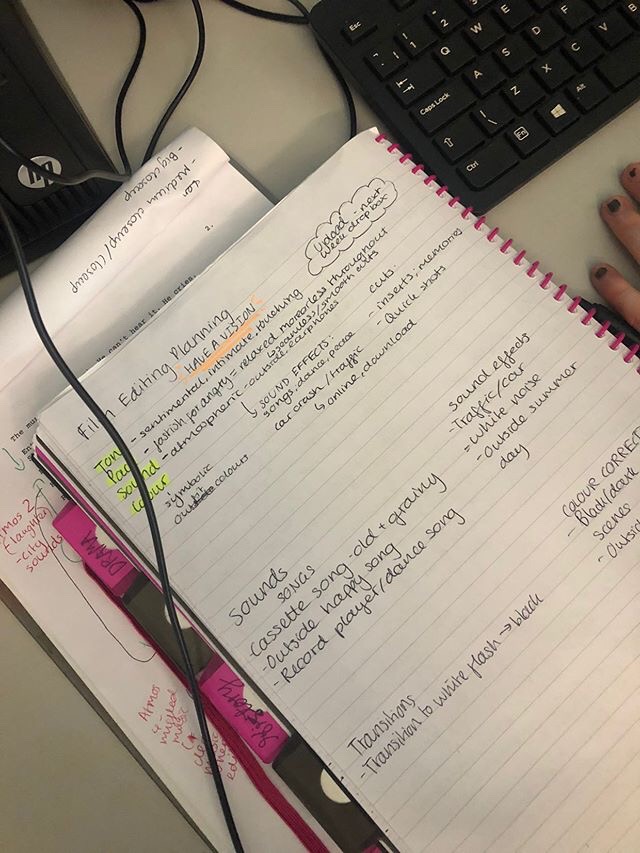 Film Editing Planning
HAVE A VISION
Upload - next
week drop box
Tone - sentimental, intimate, touching
Pace - fastish for angry = relaxed more or less throughout
↳ seamless/smooth cuts
Sound - atmospheric - outside, earphones
Colour
↳ SOUND EFFECTS:
songs, dance, peace
car crash / traffic
↳ online, download
symbolic
colours
cuts:
- inserts: memories
- Quick shots
Sounds
SONGS
Cassette song - old + grainy
- Outside happy song
- Record player/dance song
sound effects
- Traffic/car
- White noise
- Outside summer
day
COLOUR CORRECT
- Black/dark
scenes
- Outsi
Transitions
- Transition to white flash → black
- Medium closeup/closeup
- Big closeup
2.
can't hear it. He cries.
The mu
Atmos 2
laughter
- city
sounds
DRAMA
History
Atmos
4 -
muffled
music
hp
Esc
Caps Lock
Ctrl
Fn
Alt
1
2
Q
W
E
R
A
S
D
F
Z
X
C
V
B